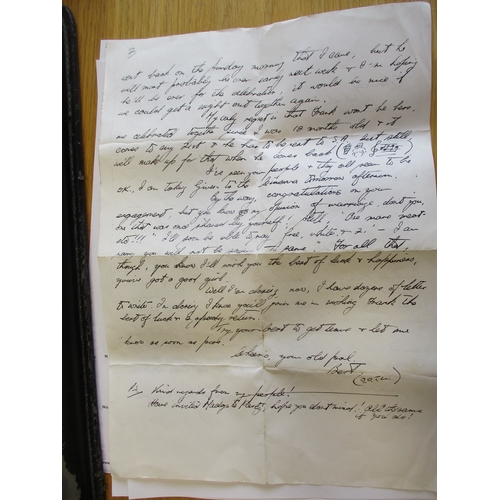 3
went back on the Sunday morning that I came, but he
will most probably be over early next week & I'm hoping
he'll be over for the celebration, it would be nice if
we could get a night out together again.
My only regret is that Frank won't be here.
we celebrated together since I was 18 months old & it
comes to my 21st & he has to be sent to S.A. but still,
will make up for that when he comes back
I've seen your people & they all seem to be
O.K. I am taking to the cinema tomorrow afternoon.
By the way, congratulations on your
engagement, but you know my opinion of marriage, don't you,
one that was once shared by yourself! Still, 'One more
!!!' I'll soon be able to say 'free, white & 21' - I am
you will not be the same. For all that,
though, you know I'll wish you the best of luck & happiness,
you've got a good girl.
Well I am closing now, I have dozens of letters
to write. In closing I know you'll join me in wishing Frank the
best of luck & a speedy return.
Try your best to get leave & let me
know as soon as poss.
Cheerio, your old pal,
Bert
P.S. Kind regards from my people!
Have invited to, hope you don't mind!
if you do!